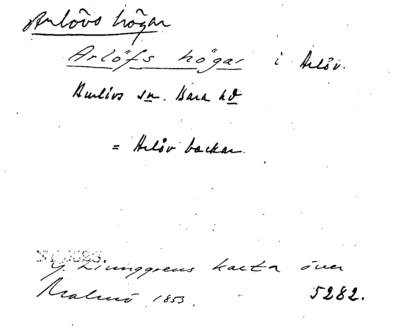 Arlövs högar
Arlöfs högar i Arlöv.
Burlövs sn. Bara hd
= Arlöv backar.
G. Ljunggrens karta över
Malmö 1853 5282.